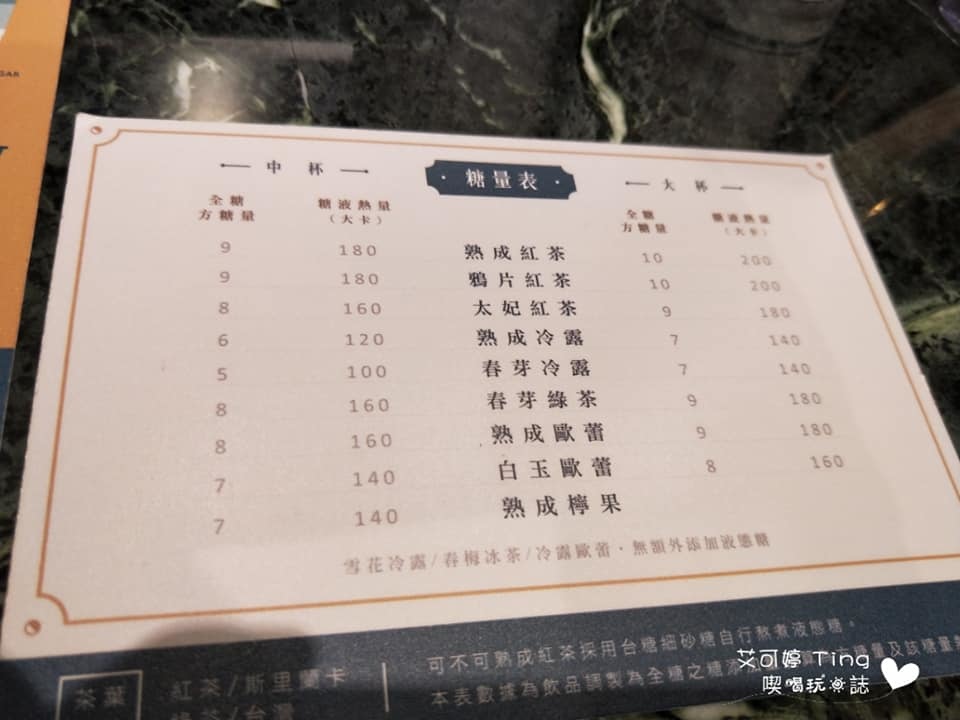 糖量表
中杯
大杯
全糖 方糖量 糖液熱量 (大卡) 全糖 方糖量 糖液熱量 (大卡)
9 180 熟成紅茶 10 200
9 180 鴉片紅茶 10 200
8 160 太妃紅茶 9 180
6 120 熟成冷露 7 140
5 100 春芽冷露 7 140
8 160 春芽綠茶 9 180
8 160 熟成歐蕾 9 180
7 140 白玉歐蕾 8 160
7 140 熟成檸果
雪花冷露/春梅冰茶/冷露歐蕾·無額外添加液態糖
茶葉
紅茶/斯里蘭卡
綠茶/台灣
可不可熟成紅茶採用台糖細砂糖自行熬煮液態糖。
本表數據為飲品調製為全糖之糖添 糖量及該糖量
艾可婷 Ting
喫喝玩樂誌